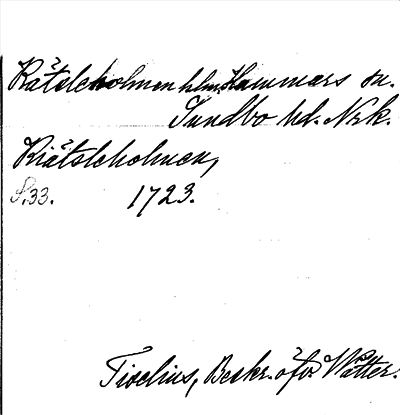 Råtsleholmen hlm. Hammars sn.
Sundbo hd. Nrk.
Riåtsleholmen,
S.33. 1723.
Tiselius, Beskr. öfv. Wätter.